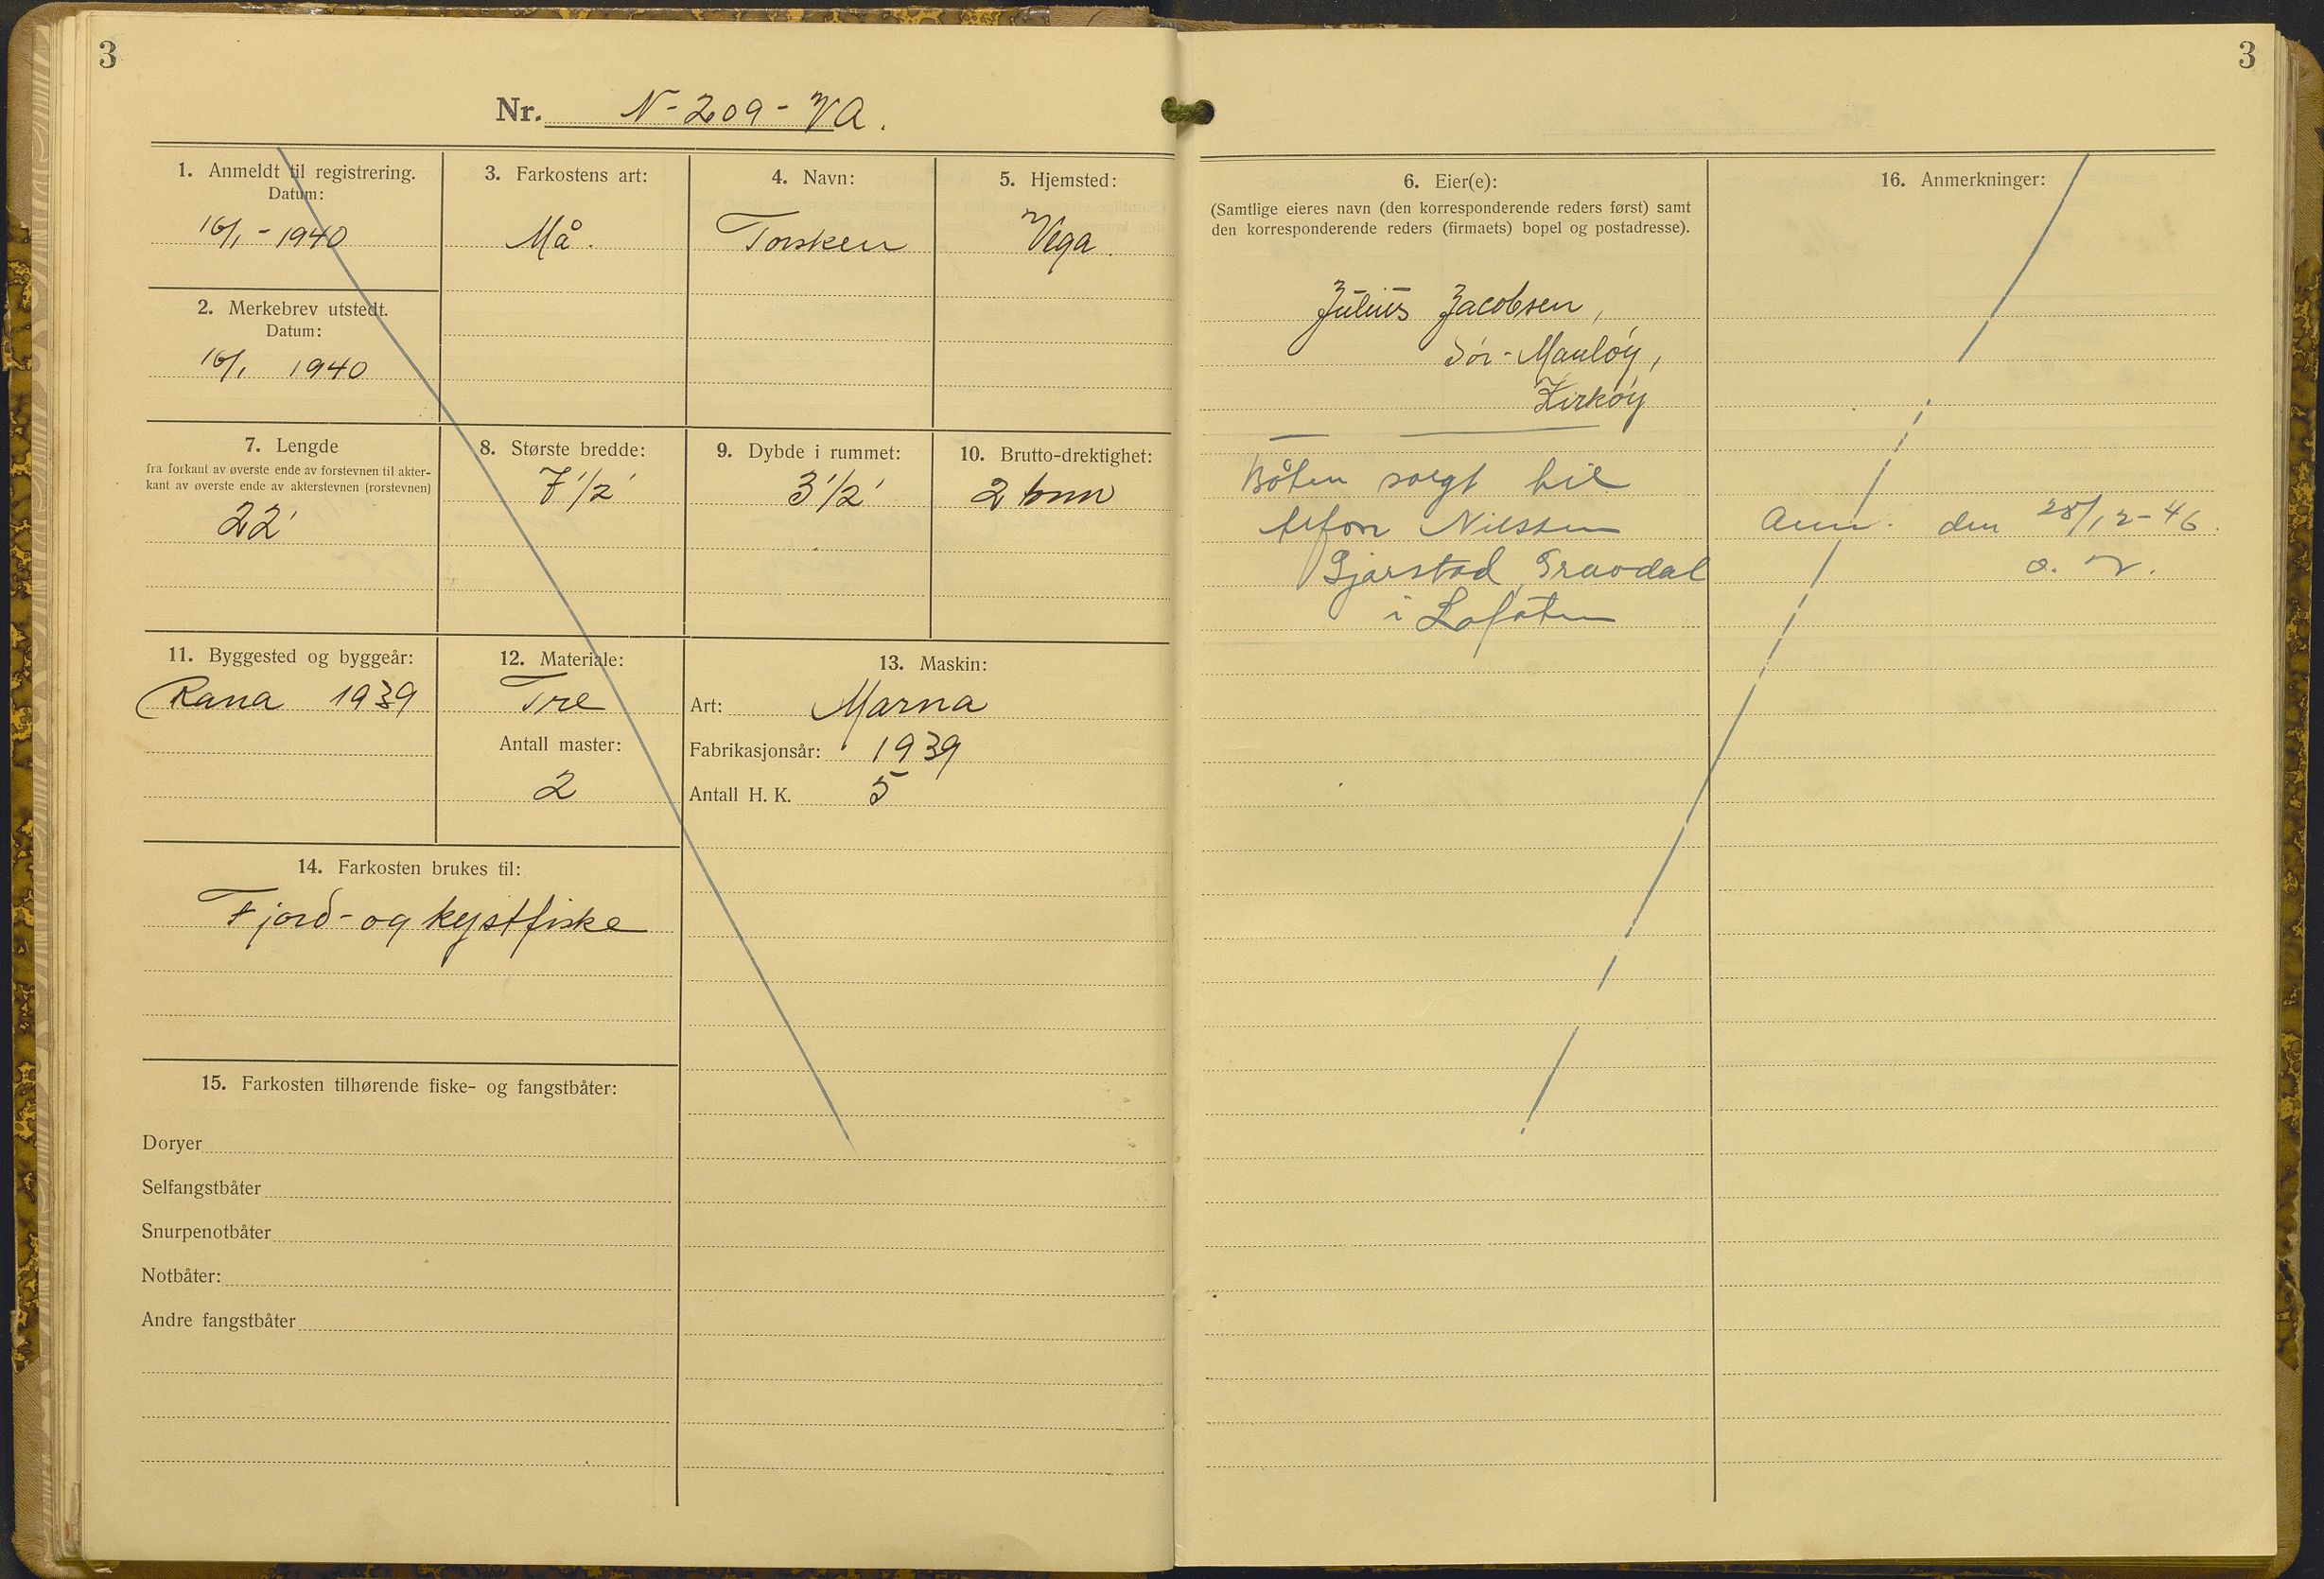 3
Nr. N-209-VA.
1. Anmeldt til registrering.
Datum:
16/1-1940
2. Merkebrev utstedt.
Datum:
16/1 1940
3. Farkostens art:
Må.
4. Navn:
Torsken
5. Hjemsted:
Vega.
7. Lengde
fra forkant av øverste ende av forstevnen til akter-
kant av øverste ende av akterstevnen (rorstevnen)
22'
8. Største bredde:
7 1/2'
9. Dybde i rummet:
3 1/2'
10. Brutto-drektighet:
2 tonn
11. Byggested og byggeår:
Rana 1939
12. Materiale:
Tre
Antall master:
2
13. Maskin:
Art: Marna
Fabrikasjonsår: 1939
Antall H. K. 5
14. Farkosten brukes til:
Fjord- og kystfiske
15. Farkosten tilhørende fiske- og fangstbåter:
Doryer
Selfangstbåter
Snurpenotbåter
Notbåter:
Andre fangstbåter
3
6. Eier(e):
(Samtlige eieres navn (den korresponderende reders først) samt
den korresponderende reders (firmaets) bopel og postadresse).
Julius Jacobsen,
Sør-Mauløy,
Kirkøy
Båten solgt til
Nilssen
Gjerstad, Gravdal
i Lofoten
16. Anmerkninger:
Ann. den 28/12-46.